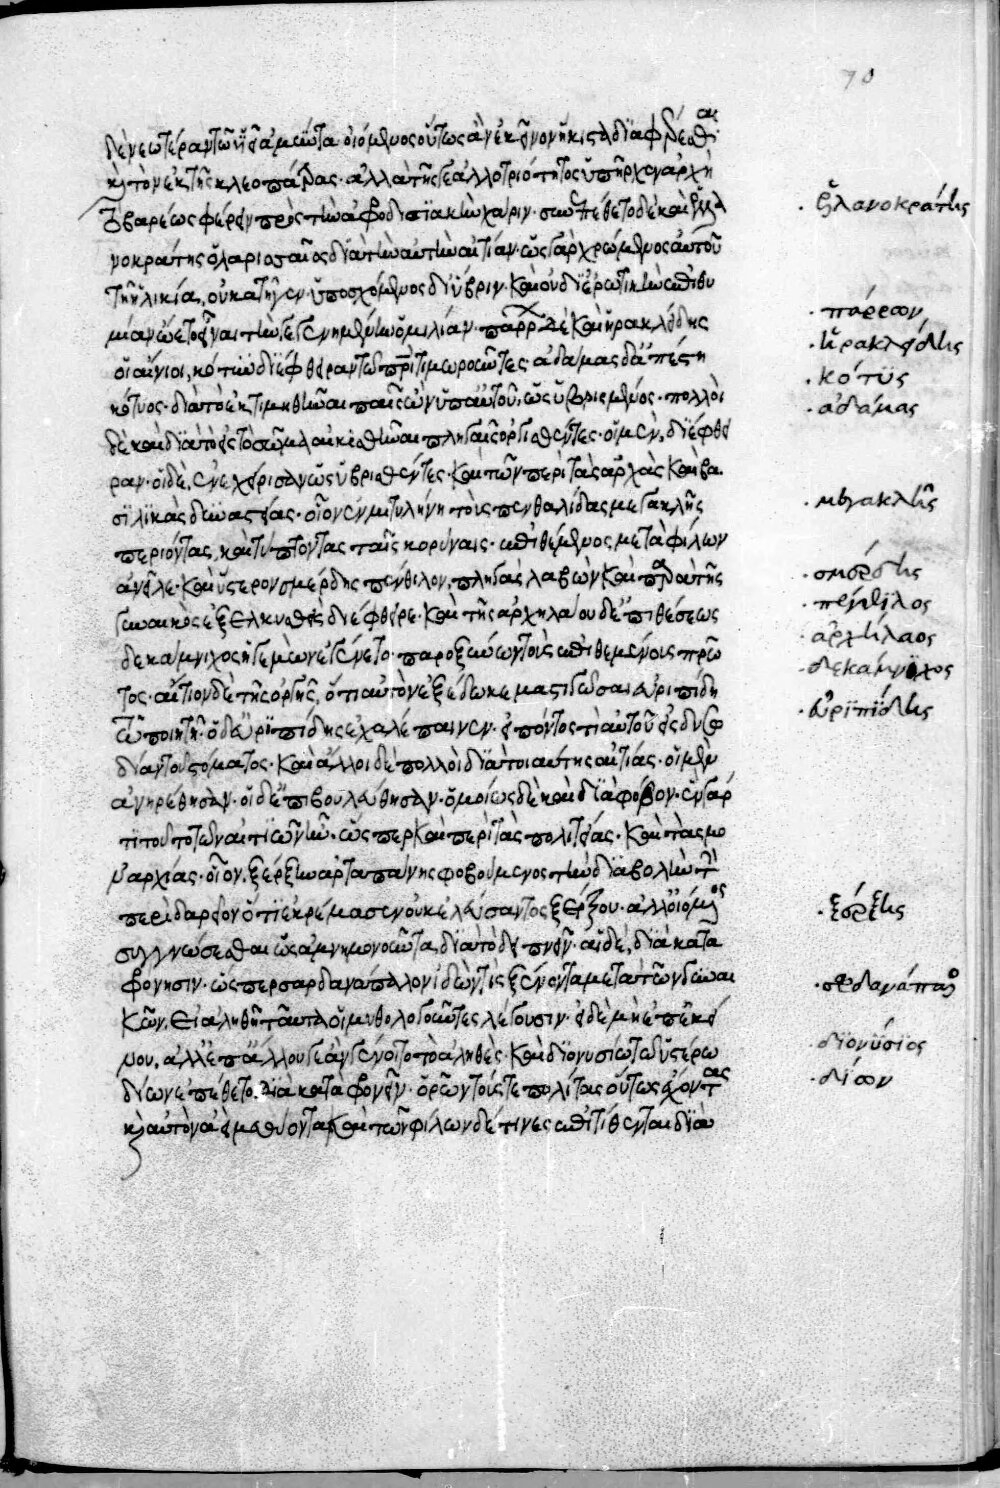 70
δὲ νεωτέραν τῶ υἱεῖ ἀμύντα οἰόμενος οὕτως ἂν ἐκεῖνον ἥκιστα διαφέρεσθαι
καὶ τὸν ἐκ τῆς κλεοπάτρας· ἀλλὰ τῆς γε ἀλλοτριότητος ὑπῆρχεν ἀρχὴ
τὸ βαρέως φέρειν πρὸς τὴν ἀφροδισιακὴν χάριν· συνεπέθετο δὲ καὶ ἑλλα
νοκράτης ὁ λαρισσαῖος διὰ τὴν αὐτὴν αἰτίαν· ὡς γὰρ χρώμενος αὐτοῦ
τῇ ἡλικία, οὐ κατῆγεν ὑποσχόμενος δι' ὕβριν· καὶ οὐ δι' ἐρωτικὴν ἐπιθυ
μίαν ὤετο εἶναι τὴν γεγενημένην ὁμιλίαν· πάρρων δὲ καὶ ἡρακλείδης
οἱ αἴνιοι, κότυν διέφθειραν τῶ πατρὶ τιμωροῦντες· ἀδάμας δ' ἀπέστη
κότυος· διὰ τὸ ἐκτιμηθῆναι παῖς ὢν ὑπ' αὐτοῦ, ὡς ὑβρισμένος· πολλοὶ
δὲ καὶ διὰ τὸ εἰς τὸ σῶμα αἰκισθῆναι πληγαῖς ὀργισθέντες· οἱ μὲν, διέφθει
ραν· οἱ δὲ, ἐνεχείρησαν ὡς ὑβρισθέντες· καὶ τῶν περὶ τὰς ἀρχὰς καὶ βα
σιλικὰς δυναστείας· οἷον ἐν μιτυλήνη τοὺς πενθαλίδας μεγακλῆς
περιόντας, καὶ τύπτοντας ταῖς κορύναις· ἐπιθέμενος μετὰ φίλων
ἀνεῖλε· καὶ ὕστερον σμέρδης πένθιλον, πληγὰς λαβὼν καὶ παρὰ τῆς
γυναικὸς ἐξελκυσθεὶς διέφθειρε· καὶ τῆς ἀρχηλάου δ' ἐπιθέσεως
δεκάμνιχος ἡγεμὼν ἐγένετο· παροξύνων τοὺς ἐπιθεμένους πρῶ
τος· αἴτιον δὲ τῆς ὀργῆς, ὅτι αὐτὸν ἐξέδωκε μαστιγῶσαι εὐριπίδη
τῶ ποιητῇ· ὁ δ' εὐριπίδης ἐχαλέπαινεν· εἰπόντος τι αὐτοῦ εἰς δυσω
δίαν τοῦ στόματος· καὶ ἄλλοι δὲ πολλοὶ διὰ τοιαύτης αἰτίας· οἱ μὲν
ἀνηρέθησαν· οἱ δ' ἐπιβουλεύθησαν· ὁμοίως δὲ καὶ διὰ φόβον· ἓν γάρ
τι τοῦτο τῶν αἰτίων ἦν· ὥσπερ καὶ περὶ τὰς πολιτείας· καὶ τὰς μο
ναρχίας· οἷον, ξέρξην ἀρταπάνης φοβούμενος τὴν διαβολὴν τὴν
περὶ δαρεῖον ὅτι ἐκρέμασεν οὐ κελεύσαντος ξέρξου· ἀλλ' οἰόμενος
συγγνώσεσθαι ὡς ἀμνημονοῦντα, διὰ τὸ δειπνεῖν· αἱ δὲ, διὰ κατα
φρόνησιν· ὥσπερ σαρδανάπαλλον ἰδών τις ξαίνοντα μετὰ τῶν γυναι
κῶν, εἰ ἀληθῆ ταῦτα οἱ μυθολογοῦντες λέγουσιν· εἰ δὲ μὴ ἐπ' ἐκεί
νου, ἀλλ' ἐπ' ἄλλου γε ἂν γένοιτο τὸ ἀληθὲς· καὶ διονυσίω τῶ ὑστέρω
δίων ἐπέθετο, διὰ καταφρονεῖν· ὁρῶν τούς τε πολίτας οὕτως ἔχοντας
καὶ αὐτὸν ἀεὶ μεθύοντα· καὶ τῶν φίλων δέ τινες ἐπιτίθενται διὰ
· ἑλλανοκράτης
· πάρρων
· ἡρακλείδης
· κότυς
· ἀδάμας
· μεγακλῆς
· σμέρδης
· πένθιλος
· ἀρχήλαος
· δεκάμνιχος
· εὐριπίδης
· ξέρξης
· σαρδανάπαλος
· διονύσιος
· δίων